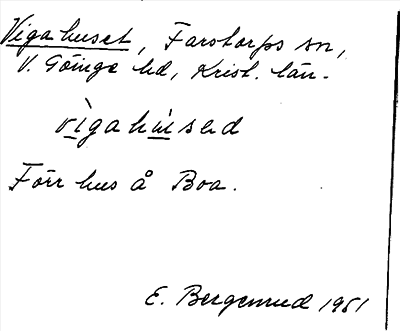 Vigahuset, Farstorps sn,
V. Göinge hd, Krist. län.
vìgahúsed
Förr hus å Boa.
E. Bergenrud 1951